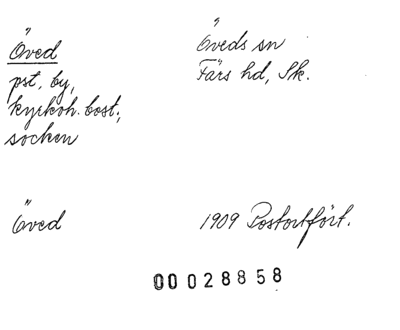 Öved
Öveds sn
pst, by,
Färs hd, Sk.
kyrkoh. bost.,
socken
Öved
1909 Postortfört.
00 028858